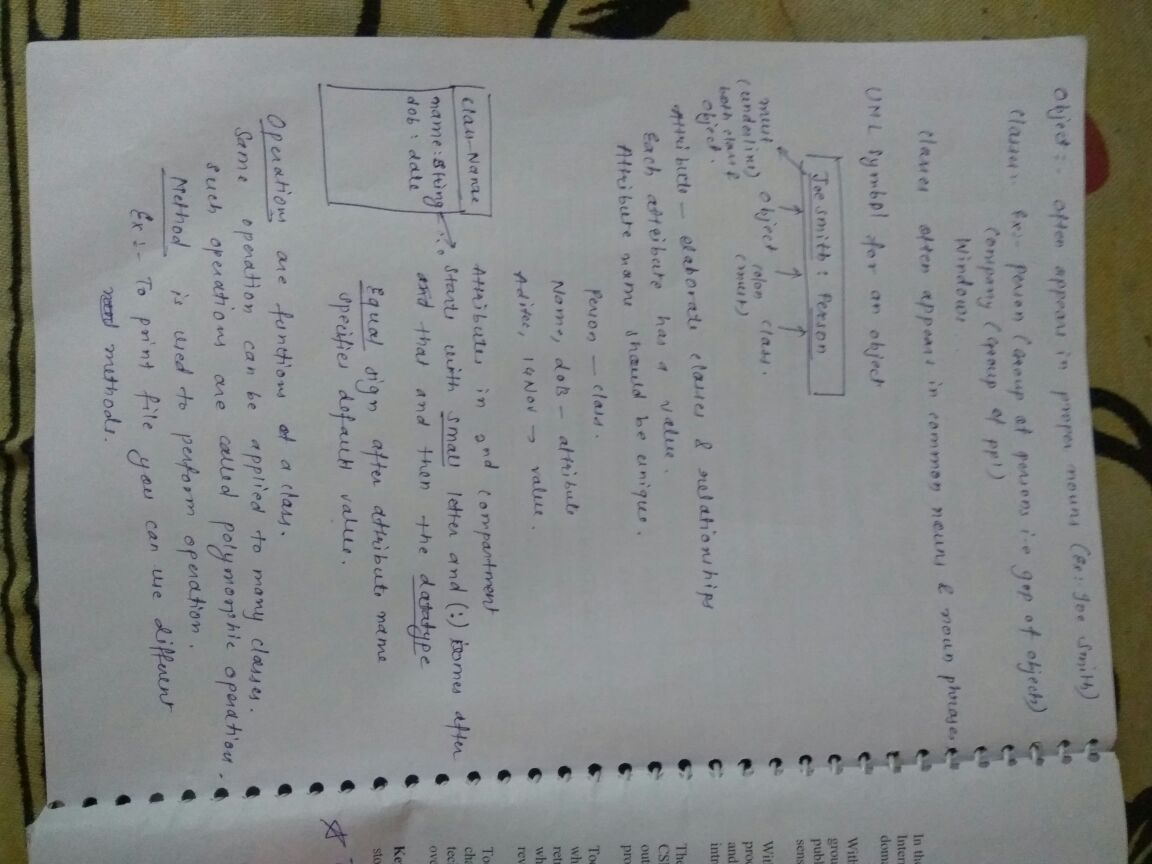 Object :- often appears in proper nouns (Ex:- Joe Smith)
Classes:- Ex:- person (group of persons i.e grp of objects)
company (group of ppl)
Windows.
classes often appears in common nouns & noun phrases
UML symbol for an object
Joe Smith : Person
must object colon class.
(underline) (must)
both class &
object.
Attribute - elaborate classes & relationships
Each attribute has a value.
Attribute name should be unique.
Person - class.
Name, dob - attribute
14 Nov → value.
Class-Name
name: string
dob : date
Attributes in 2nd compartment
Starts with small letter and (:) comes after
and that and then the datatype
Equal sign after attribute name
specifies default value.
Operations are functions of a class.
Same operation can be applied to many classes.
such operations are called polymorphic operation.
Method is used to perform operation.
Ex:- To print file you can use different
methods.
In the
Inter
dom
With
grou
publ
sens
Wi
pro
and
intr
The
CS
out
pro
To
wh
retr
wh
rev
To
cha
tec
ove
Ke
sto